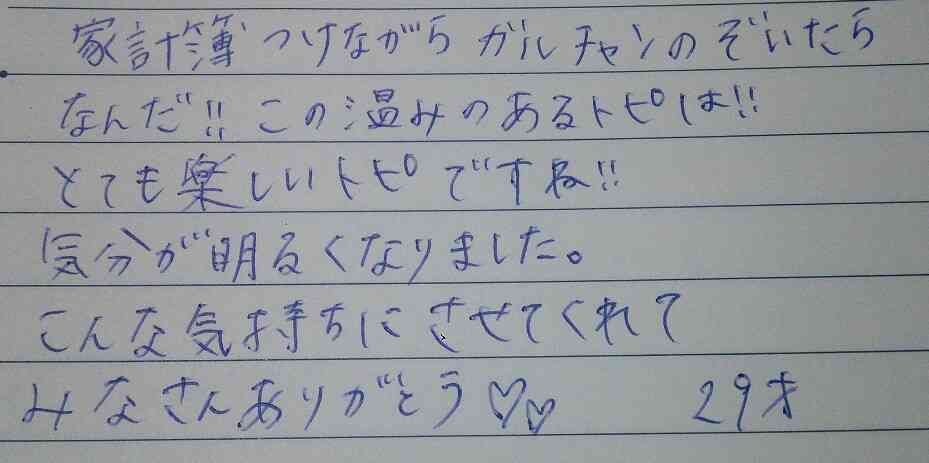 家計簿つけながらガルチャンのぞいたら
なんだ!!この温みのあるトピは!!
とても楽しいトピですね!!
気分が明るくなりました。
こんな気持ちにさせてくれて
みなさんありがとう♡♡ 29才